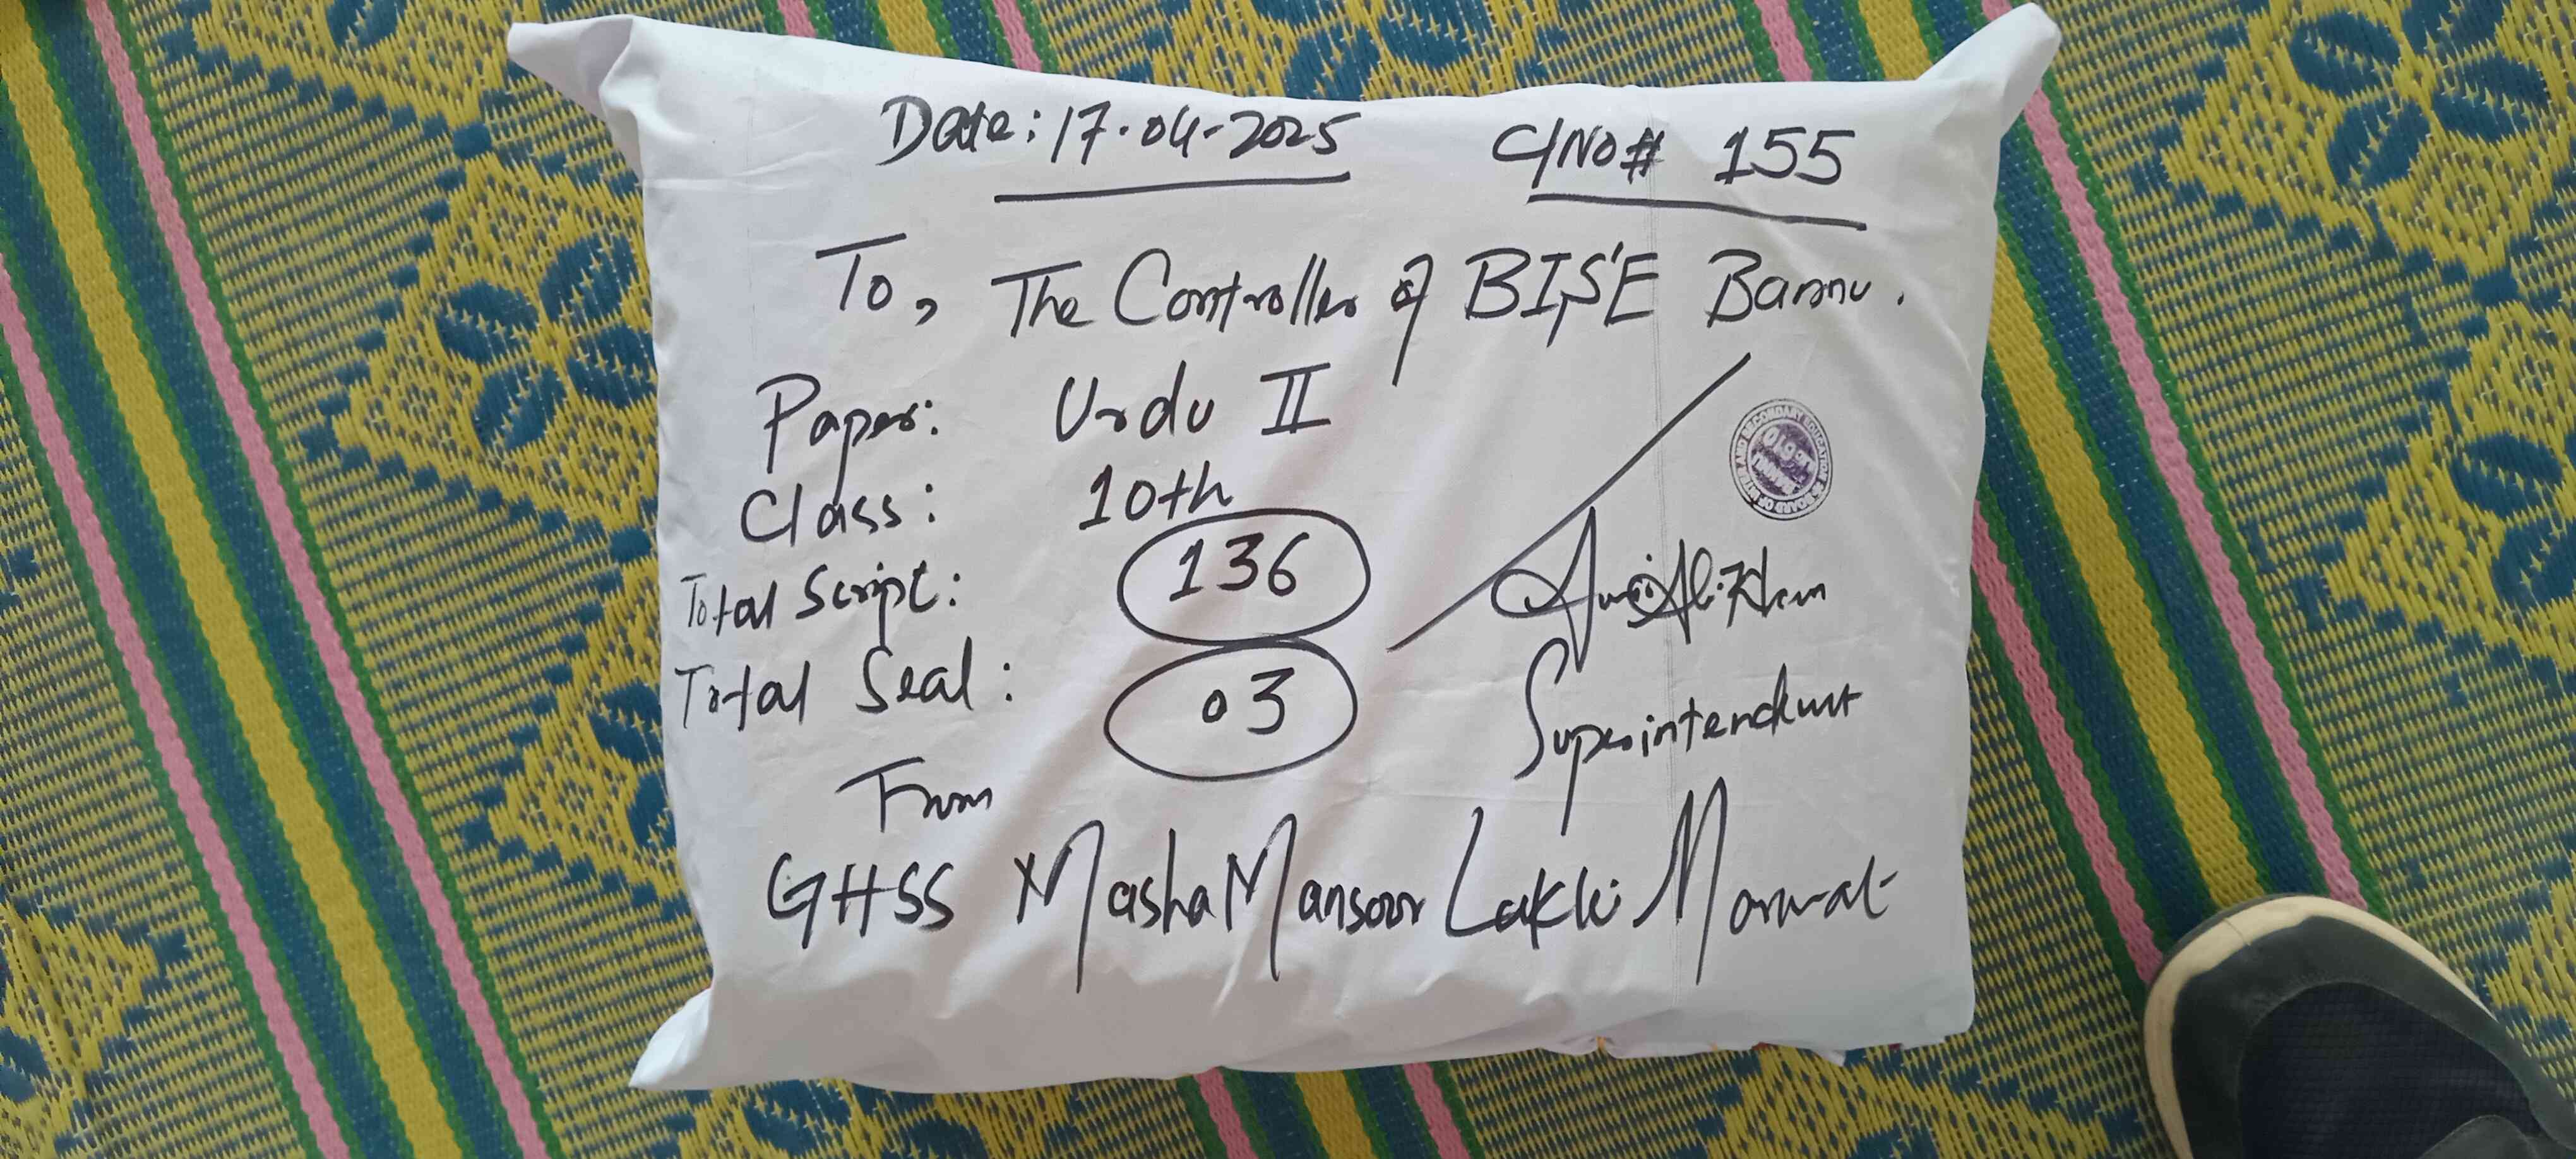 Date: 17-04-2025 C/No# 155
To, The Controller of BISE Bannu.
Paper: Urdu II
Class: 10th
Total Script: 136
Total Seal: 03
Ali Khan
Superintendent
From
GHSS Masha Mansoor Lakki Marwat